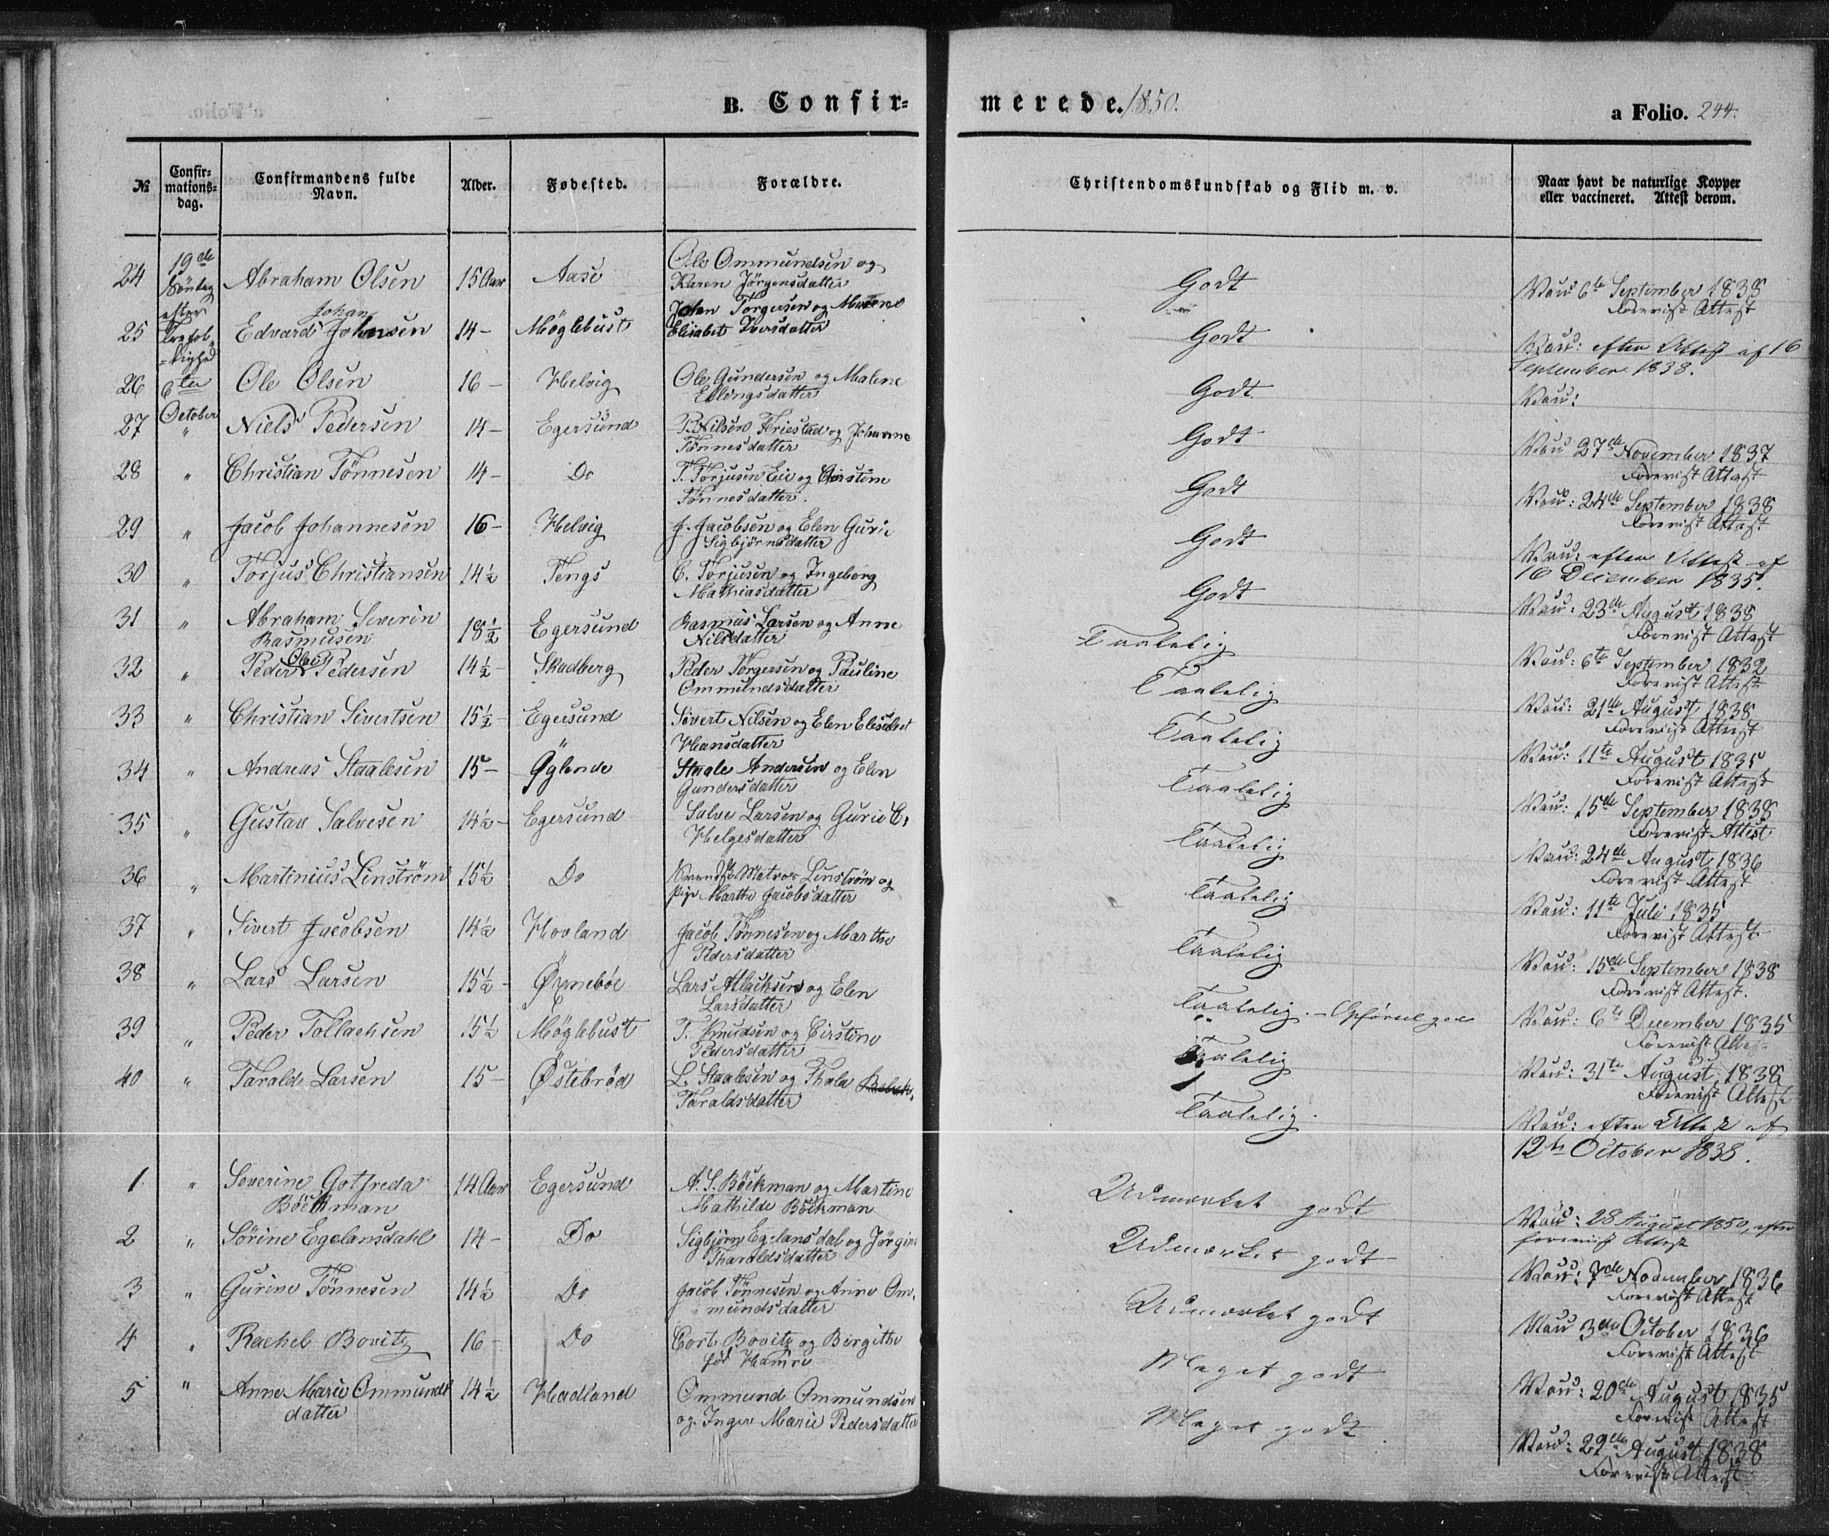 B. Confir-
merede. 1850.
a Folio. 244.
№
Confir-
mations-
dag.
Confirmandens fulde
Navn.
Alder.
Fødested.
Forældre.
Christendomskundskab og Flid m. v.
Naar havt de naturlige Kopper
eller vaccineret. Attest derom.
24 19de Søndag efter Trefol-dighed 6te October Abraham Olsen 15 Aar Aase Ole Ommundsen og
Karen Jørgensdatter Godt Vac: 6te September 1838
Forevist Attest
25 Edvard Johan Johnsen 14 - Møglebust John Torgersen og Malene
Elisabet Iversdatter Godt Vac: efter Attest af 16
September 1838.
26 Ole Olsen 16 - Helvig Ole Gundersen og Malene
Ellingsdatter Godt Vac:
27 " Niels Pedersen 14 - Egersund P. Nilsen Friestad og Johanne
Tønnesdatter Godt Vac 27de November 1837
Forevist Attest
28 " Christian Tønnesen 14 - Do T. Torjusen Eie og Cirstine
Tønnesdatter. Godt Vac: 24de September 1838
Forevist Attest
29 " Jacob Johannesen 16 - Helvig J. Jacobsen og Elen Gurie
Sigbjørnsdatter Godt Vac: efter Attest af
16 December 1835.
30 " Torjus Christiansen 14½ Tengs C. Torjusen og Ingeborg
Mathiasdatter Godt Vac: 23de August 1838
Forevist Attest
31 " Abraham Severin
Rasmusen 18½ Egersund Rasmus Larsen og Anne
Nilsdatter Taalelig Vac: 6te September 1832
Forevist Attest
32 " Peder Olai Pedersen 14½ - Skadberg Peder Torgersen og Pauline
Ommundsdatter Taalelig Vac: 21de August 1838
Forevist Attest
33 " Christian Sivertsen 15½ - Egersund Sivert Nilsen og Elen Elisabet
Hansdatter Taalelig Vac: 11te August 1835
Forevist Attest
34 " Andreas Staalesen 15 - Øglende Staale Andersen og Elen
Gundersdatter Taalelig Vac: 15de September 1838
Forevist Attest
35 " Gustav Salvesen 14½ - Egersund Salve Larsen og Gurie E.
Helgesdatter Taalelig Vac: 24de August 1836
Forevist Attest
36 " Martinius Linstrøm 15½ Do Matros Linstrøm og
Pige Marthe Jacobsdatter Taalelig Vac: 11te Juli 1835
Forevist Attest
37 " Sivert Jacobsen 14½ Hovland Jacob Tønnesen og Marthe
Pedersdatter Taalelig Vac: 15de September 1838
Forevist Attest.
38 " Lars Larsen 15½ - Ørnebøe Lars Atlachsen og Elen
Larsdatter Taalelig. - Opførsel god Vac: 6te December 1835
Forevist Attest
39 " Peder Tollachsen 15½ Møglebust T. Knudsen og Cirstine
Pedersdatter Taalelig Vac: 31te August 1838
Forevist Attest
40 " Tarald Larsen 15 - Østebrød L. Staalesen og Thala
Taraldsdatter Taalelig. Vac: efter Attest af
12te October 1838.
1 " Severine Gotfreda
Böckman 14 Aar Egersund A. S. Böckman og Martine
Mathilde Böckman Udmærket godt Vac: 28 August 1850, efter
forevist Attest
2 " Sørine Egelandsdahl 14 - Do Sigbjørn Egelansdal og Jørgine
Tharaldsdatter Udmærket godt Vac: 7de November 1836
Forevist Attest
3 " Gurine Tønnesen 14½ Do Jacob Tønnesen og Anne Om-
mundsdatter Udmærket godt Vac 3de October 1836
Forevist Attest
4 " Rachel Bovitz 16 - Do Cort Bovitz og Birgithe
fød Hamre Meget godt Vac: 20de August 1835
Forevist Attest
5 " Anne Marie Ommunds
datter 14½ Hadland Ommund Ommundsen
og Inger Marie Pedersdatter Meget godt Vac: 22de August 1838
Forevist Attest